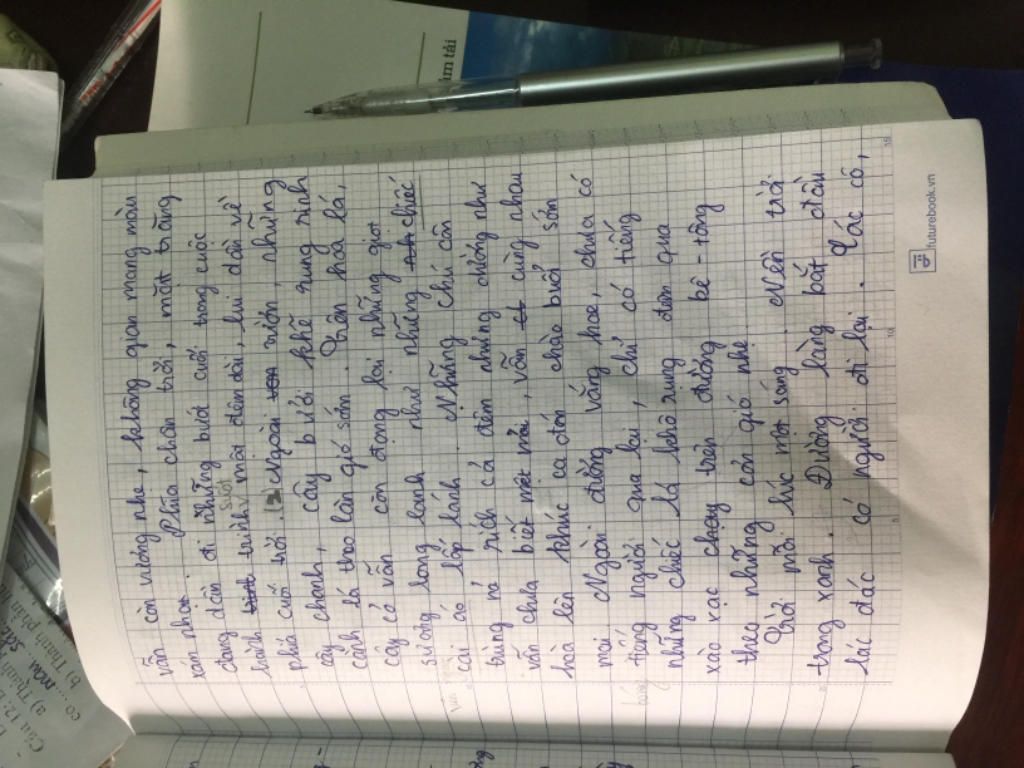 vẫn còn vương nhẹ, không gian mang màu
xám nhạt.
Phía chân trời, mặt trăng
đang dần đi những bước cuối trong cuộc
hành trình suốt một đêm dài, lui dần về
phía cuối trời. (2) Ngoài vườn, những
cây chanh, cây bưởi khẽ rung rinh
cành lá theo làn gió sớm. Trên hoa lá,
cây cỏ vẫn còn đọng lại những giọt
sương long lanh như những chiếc
cái áo lấp lánh. Những chú côn
trùng rả rích cả đêm nhưng chừng như
vẫn chưa biết mệt mỏi, vẫn cùng nhau
hòa lên khúc ca đón chào buổi sớm
mai. Ngoài đường vắng hoe, chưa có
tiếng người qua lại, chỉ có tiếng
những chiếc lá khô rụng đêm qua
xào xạc chạy trên đường bê-tông
theo những cơn gió nhẹ.
Trời mỗi lúc một sáng. Nền trời
trong xanh. Đường làng bắt đầu
lác đác có người đi lại. Các cô,
futurebook.vn
ìm tài
Câu 12:
a) Thành
b) Thành phần